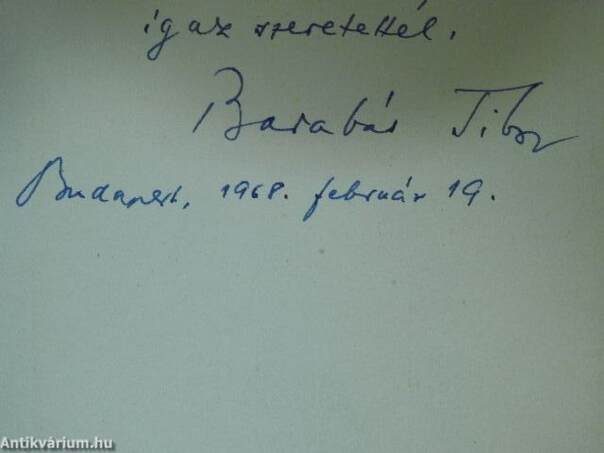 igaz szeretettel.
Barabás Tibor
Budapest, 1968. február 19.
Antikvárium.hu